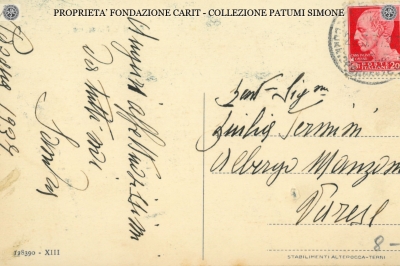 PROPRIETA' FONDAZIONE CARIT - COLLEZIONE PATUMI SIMONE
1934
Auguri affettuosissimi
da tutti noi
Gent. Sig.na
Giulia Termini
Albergo Manzoni
Varese
8-
118390 - XIII
STABILIMENTI ALTEROCCA-TERNI